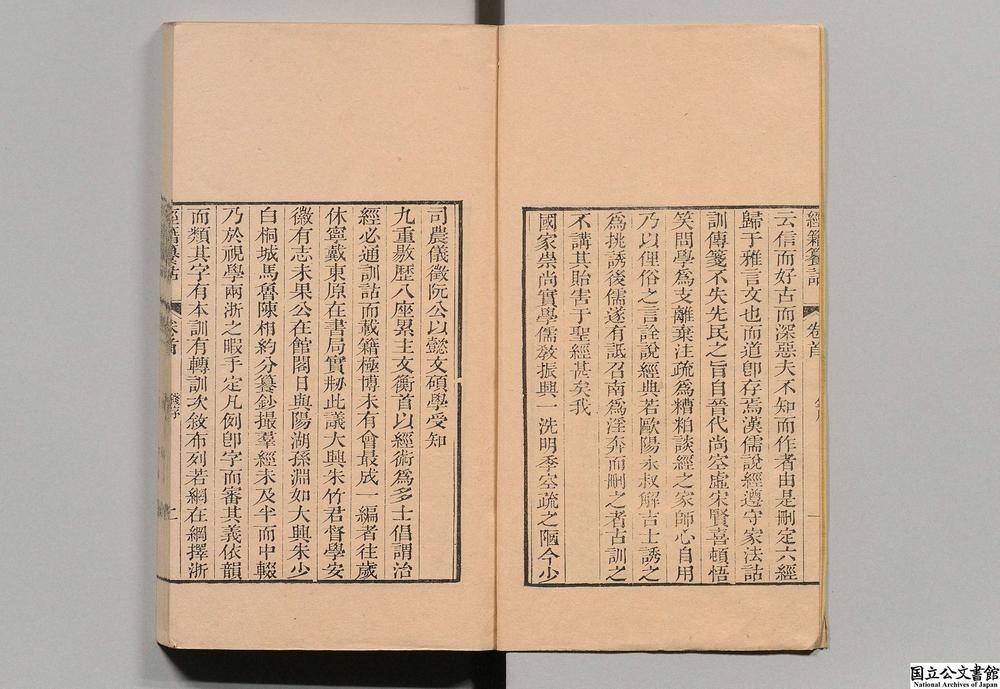 經籍籑詁 卷首 錢序 一
云信而好古而深惡夫不知而作者由是刪定六經
歸于雅言文也而道卽存焉漢儒說經遵守家法詁
訓傳箋不失先民之旨自晉代尚空虛宋賢喜頓悟
笑問學爲支離棄注疏爲糟粕談經之家師心自用
乃以俚俗之言詮說經典若歐陽永叔解吉士誘之
爲挑誘後儒遂有詆召南爲淫奔而刪之者古訓之
不講其貽害于聖經甚矣我
國家崇尚實學儒敎振興一洗明季空疏之陋今少
司農儀徵阮公以懿文碩學受知
九重敭歷八座累主文衡首以經術爲多士倡謂治
經必通訓詁而載籍極博未有會最成一編者往歲
休寧戴東原在書局實剏此議大興朱竹君督學安
徽有志未果公在館閣日與陽湖孫淵如大興朱少
白桐城馬魯陳相約分籑鈔撮羣經未及半而中輟
乃於視學兩浙之暇手定凡例卽字而審其義依韻
而類其字有本訓有轉訓次敘布列若網在綱擇浙
經籍籑詁 卷首 錢序 二
国立公文書館
National Archives of Japan